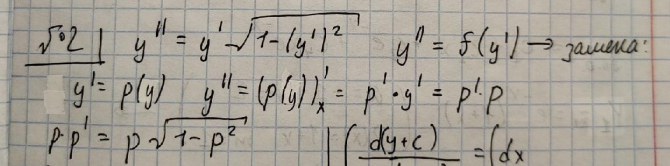 №2 | y'' = y' √(1-(y')²)   y'' = f(y') → замена:
y' = p(y)   y'' = (p(y))'ₓ = p' · y' = p' · p
p · p' = p √(1-p²) | ∫ d(y+c) = ∫ dx